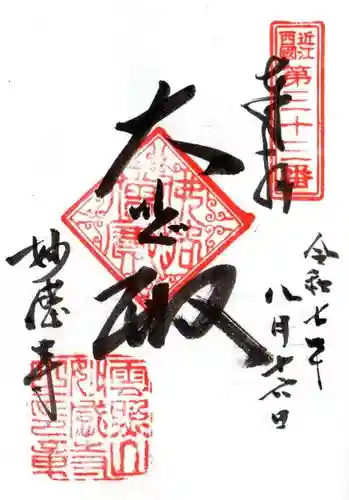 近江
西國
第三十三番
奉拝
令和七年
八月十六日
大悲殿
妙感寺
雲照山
妙感寺